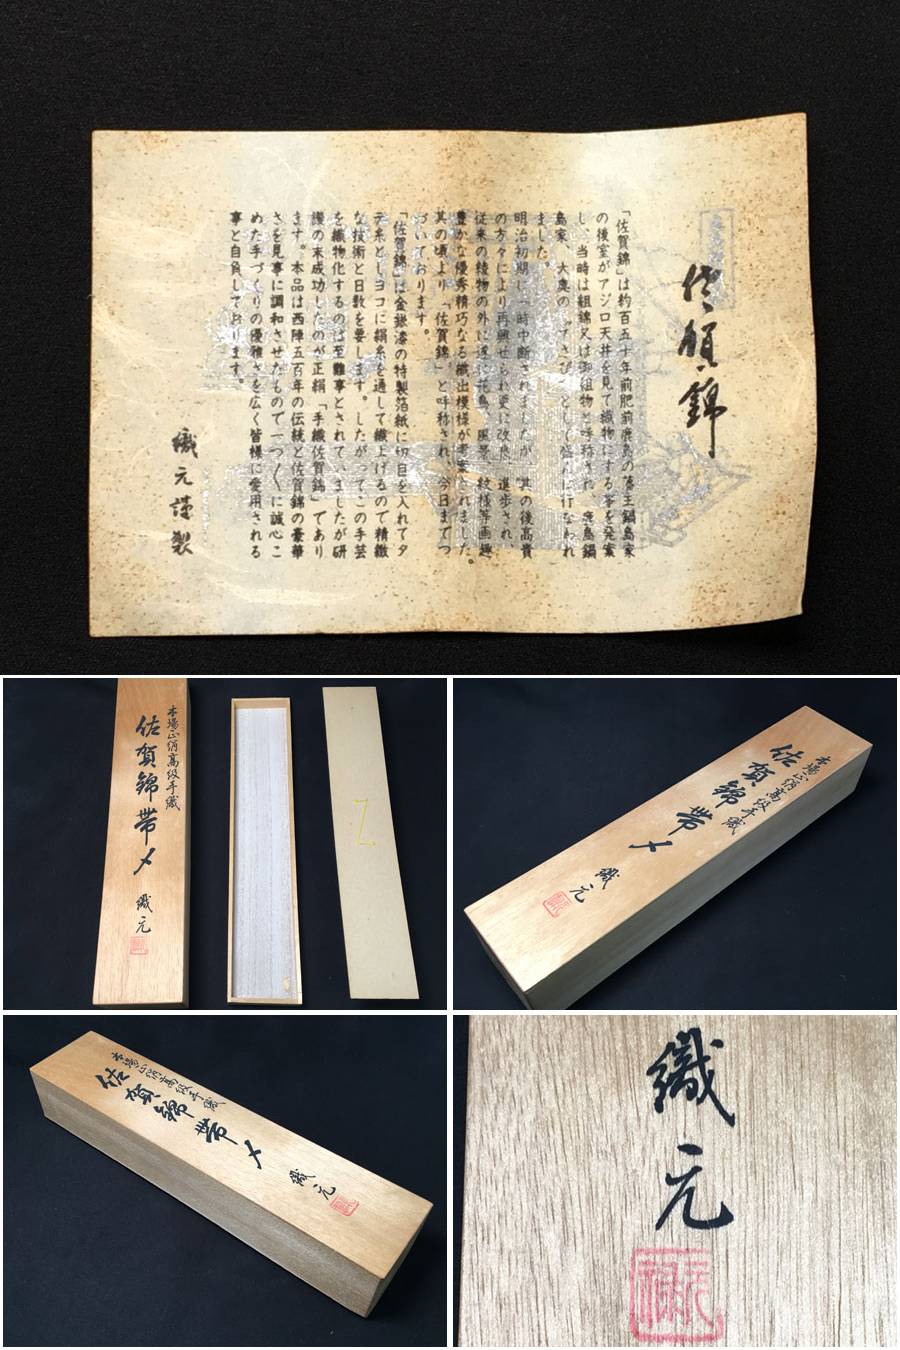 佐賀錦
「佐賀錦」は約百五十年前肥前鹿島の藩主鍋島家
の後室がアジロ天井を見て織物にする事を発案
し、当時は組錦又は御組物と呼称され、鹿島鍋
島家、大奥の「すさび」として盛んに行なわれ
ました。
明治初期に一時中断されましたが、其の後高貴
の方々により再興せられ更に改良、進歩され、
従来の綾物の外に遂に花鳥、風景、紋様等画趣
豊かな優秀精巧なる織出模様が考案されました。
其の頃より「佐賀錦」と呼称され、今日までつ
づいております。
「佐賀錦」は金銀漆の特製箔紙に切目を入れてタ
テ糸としヨコに絹糸を通して織上げるので精緻
な技術と日数を要します。したがってこの手芸
を織物化するのは至難事とされていましたが研
護の末成功したのが正絹「手織佐賀錦」であり
ます。本品は西陣五百年の伝統と佐賀錦の豪華
さを見事に調和させたもので一つ〱に誠心こ
めた手づくりの優雅さを広く皆様に愛用される
事と自負しております。
織元謹製
本場正絹高級手織
佐賀錦帯〆
織元
本場正絹高級手織
佐賀錦帯〆
織元
本場正絹高級手織
佐賀錦帯〆
織元
織元